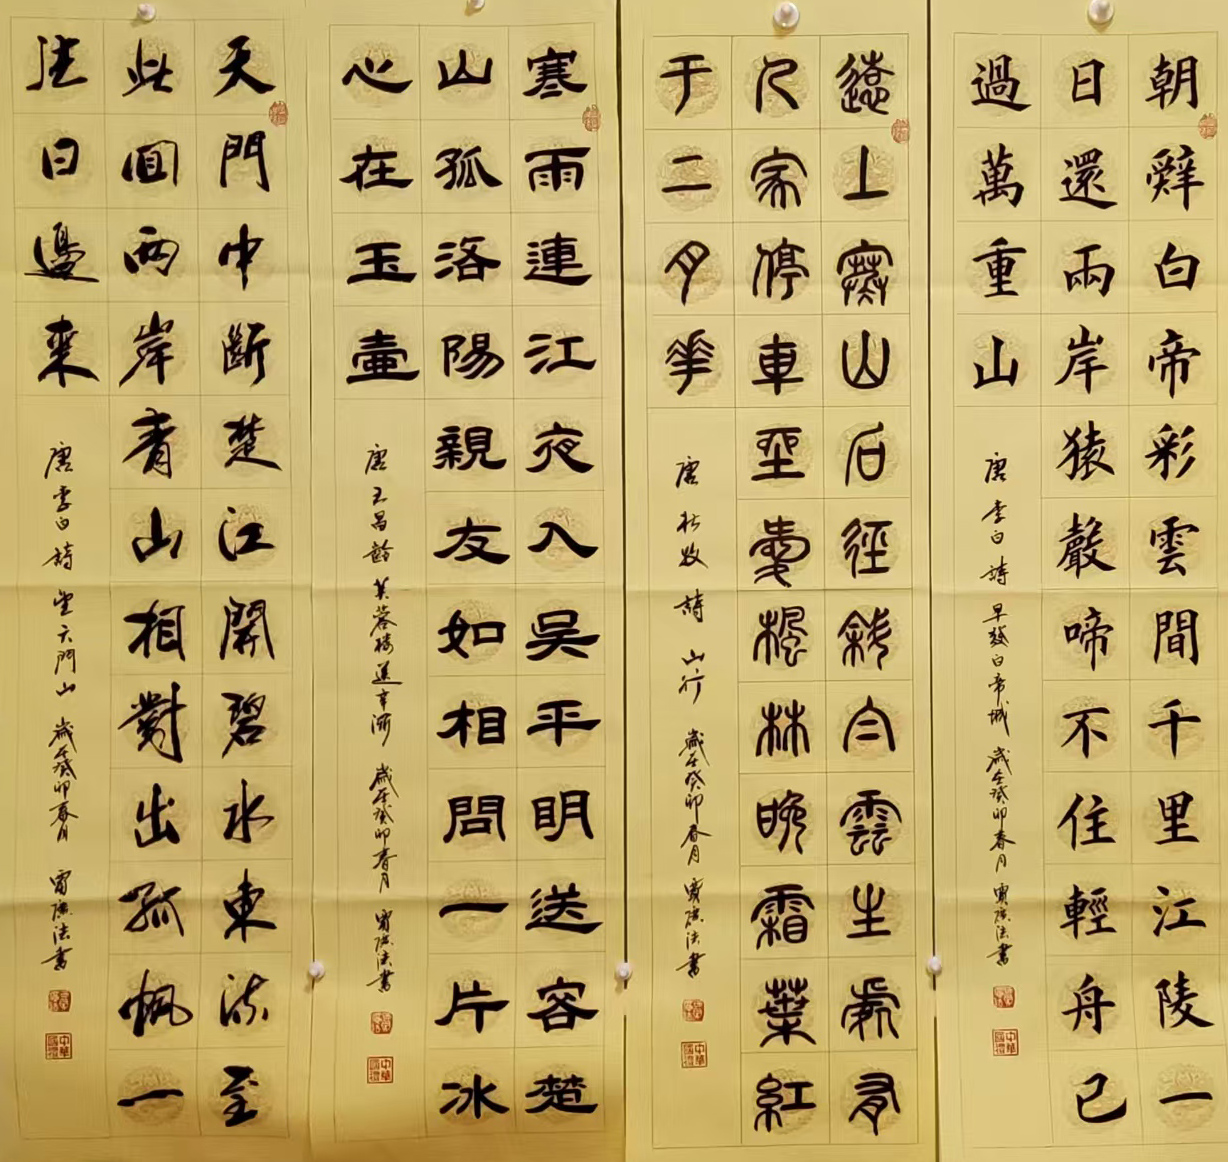 朝辭白帝彩雲間千里江陵一
日還兩岸猿聲啼不住輕舟已
過萬重山
唐 李白 詩 早發白帝城 歲在癸卯春月 法書
遠上寒山石徑斜白雲生處有
人家停車坐愛楓林晚霜葉紅
于二月華
唐 杜牧 詩 山行 歲在癸卯春月 法書
寒雨連江夜入吳平明送客楚
山孤洛陽親友如相問一片冰
心在玉壺
唐 王昌齡 芙蓉樓送辛漸 歲在癸卯春月 法書
天門中斷楚江開碧水東流至
此回兩岸青山相對出孤帆一
片日邊來
唐 李白 詩 望天門山 歲在癸卯春月 法書